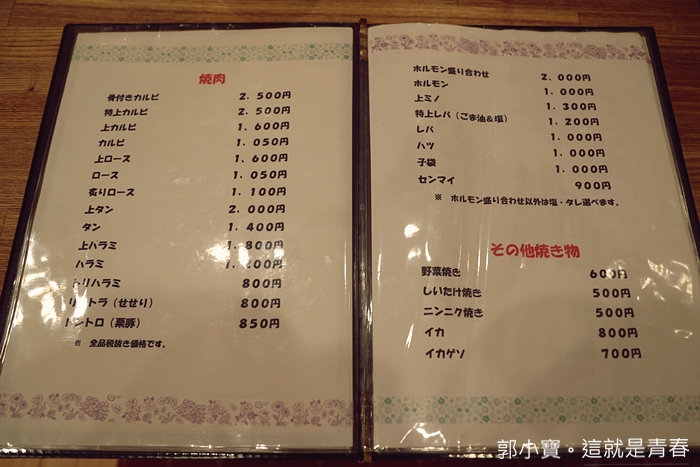 焼肉
骨付きカルビ 2,500円
特上カルビ 2,500円
上カルビ 1,600円
カルビ 1,050円
上ロース 1,600円
ロース 1,050円
炙りロース 1,100円
上タン 2,000円
タン 1,400円
上ハラミ 1,800円
ハラミ
トリハラミ 800円
(せせり) 800円
トントロ(栗豚) 850円
※ 全品税抜き価格です。
ホルモン盛り合わせ 2,000円
ホルモン 1,000円
上ミノ 1,300円
特上レバ(ごま油&塩) 1,200円
レバ 1,000円
ハツ 1,000円
子袋 1,000円
センマイ 900円
※ ホルモン盛り合わせ以外は塩・タレ選べます。
その他焼き物
野菜焼き 600円
しいたけ焼き 500円
ニンニク焼き 500円
イカ 800円
イカゲソ 700円
郭小寶。這就是青春